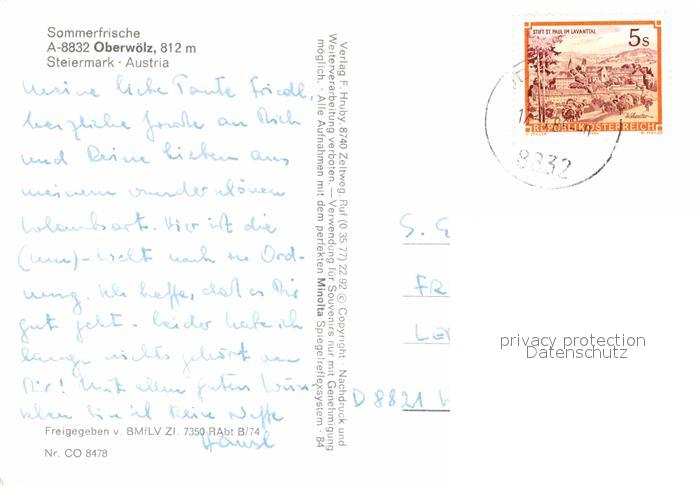 Sommerfrische
A-8832 Oberwölz, 812 m
Steiermark · Austria
Meine liebe Tante Friedl,
herzliche Grüße an Dich
und Deine Lieben aus
meinem wunderschönen
Urlaubsort. Hier ist die
(Um)-Welt noch in Ord-
nung. Ich hoffe, daß es Dir
gut geht. Leider habe ich
lange nichts gehört von
Dir! Mit allen guten Wün-
schen bin ich Deine Neffe
Hansl
Freigegeben v. BMfLV Zl. 7350 RAbt B/74
Nr. CO 8478
Verlag F. Hruby, 8740 Zeltweg, Ruf (0 35 77) 22 92 © Copyright · Nachdruck und
Weiterverarbeitung verboten. — Verwendung für Souvenirs nur mit Genehmigung
möglich. · Alle Aufnahmen mit dem perfekten Minolta Spiegelreflexsystem · 84
STIFT ST. PAUL IM LAVANTTAL
5 S
REPUBLIK ÖSTERREICH
8832
S. G
FR
LE
D 8821
privacy protection
Datenschutz